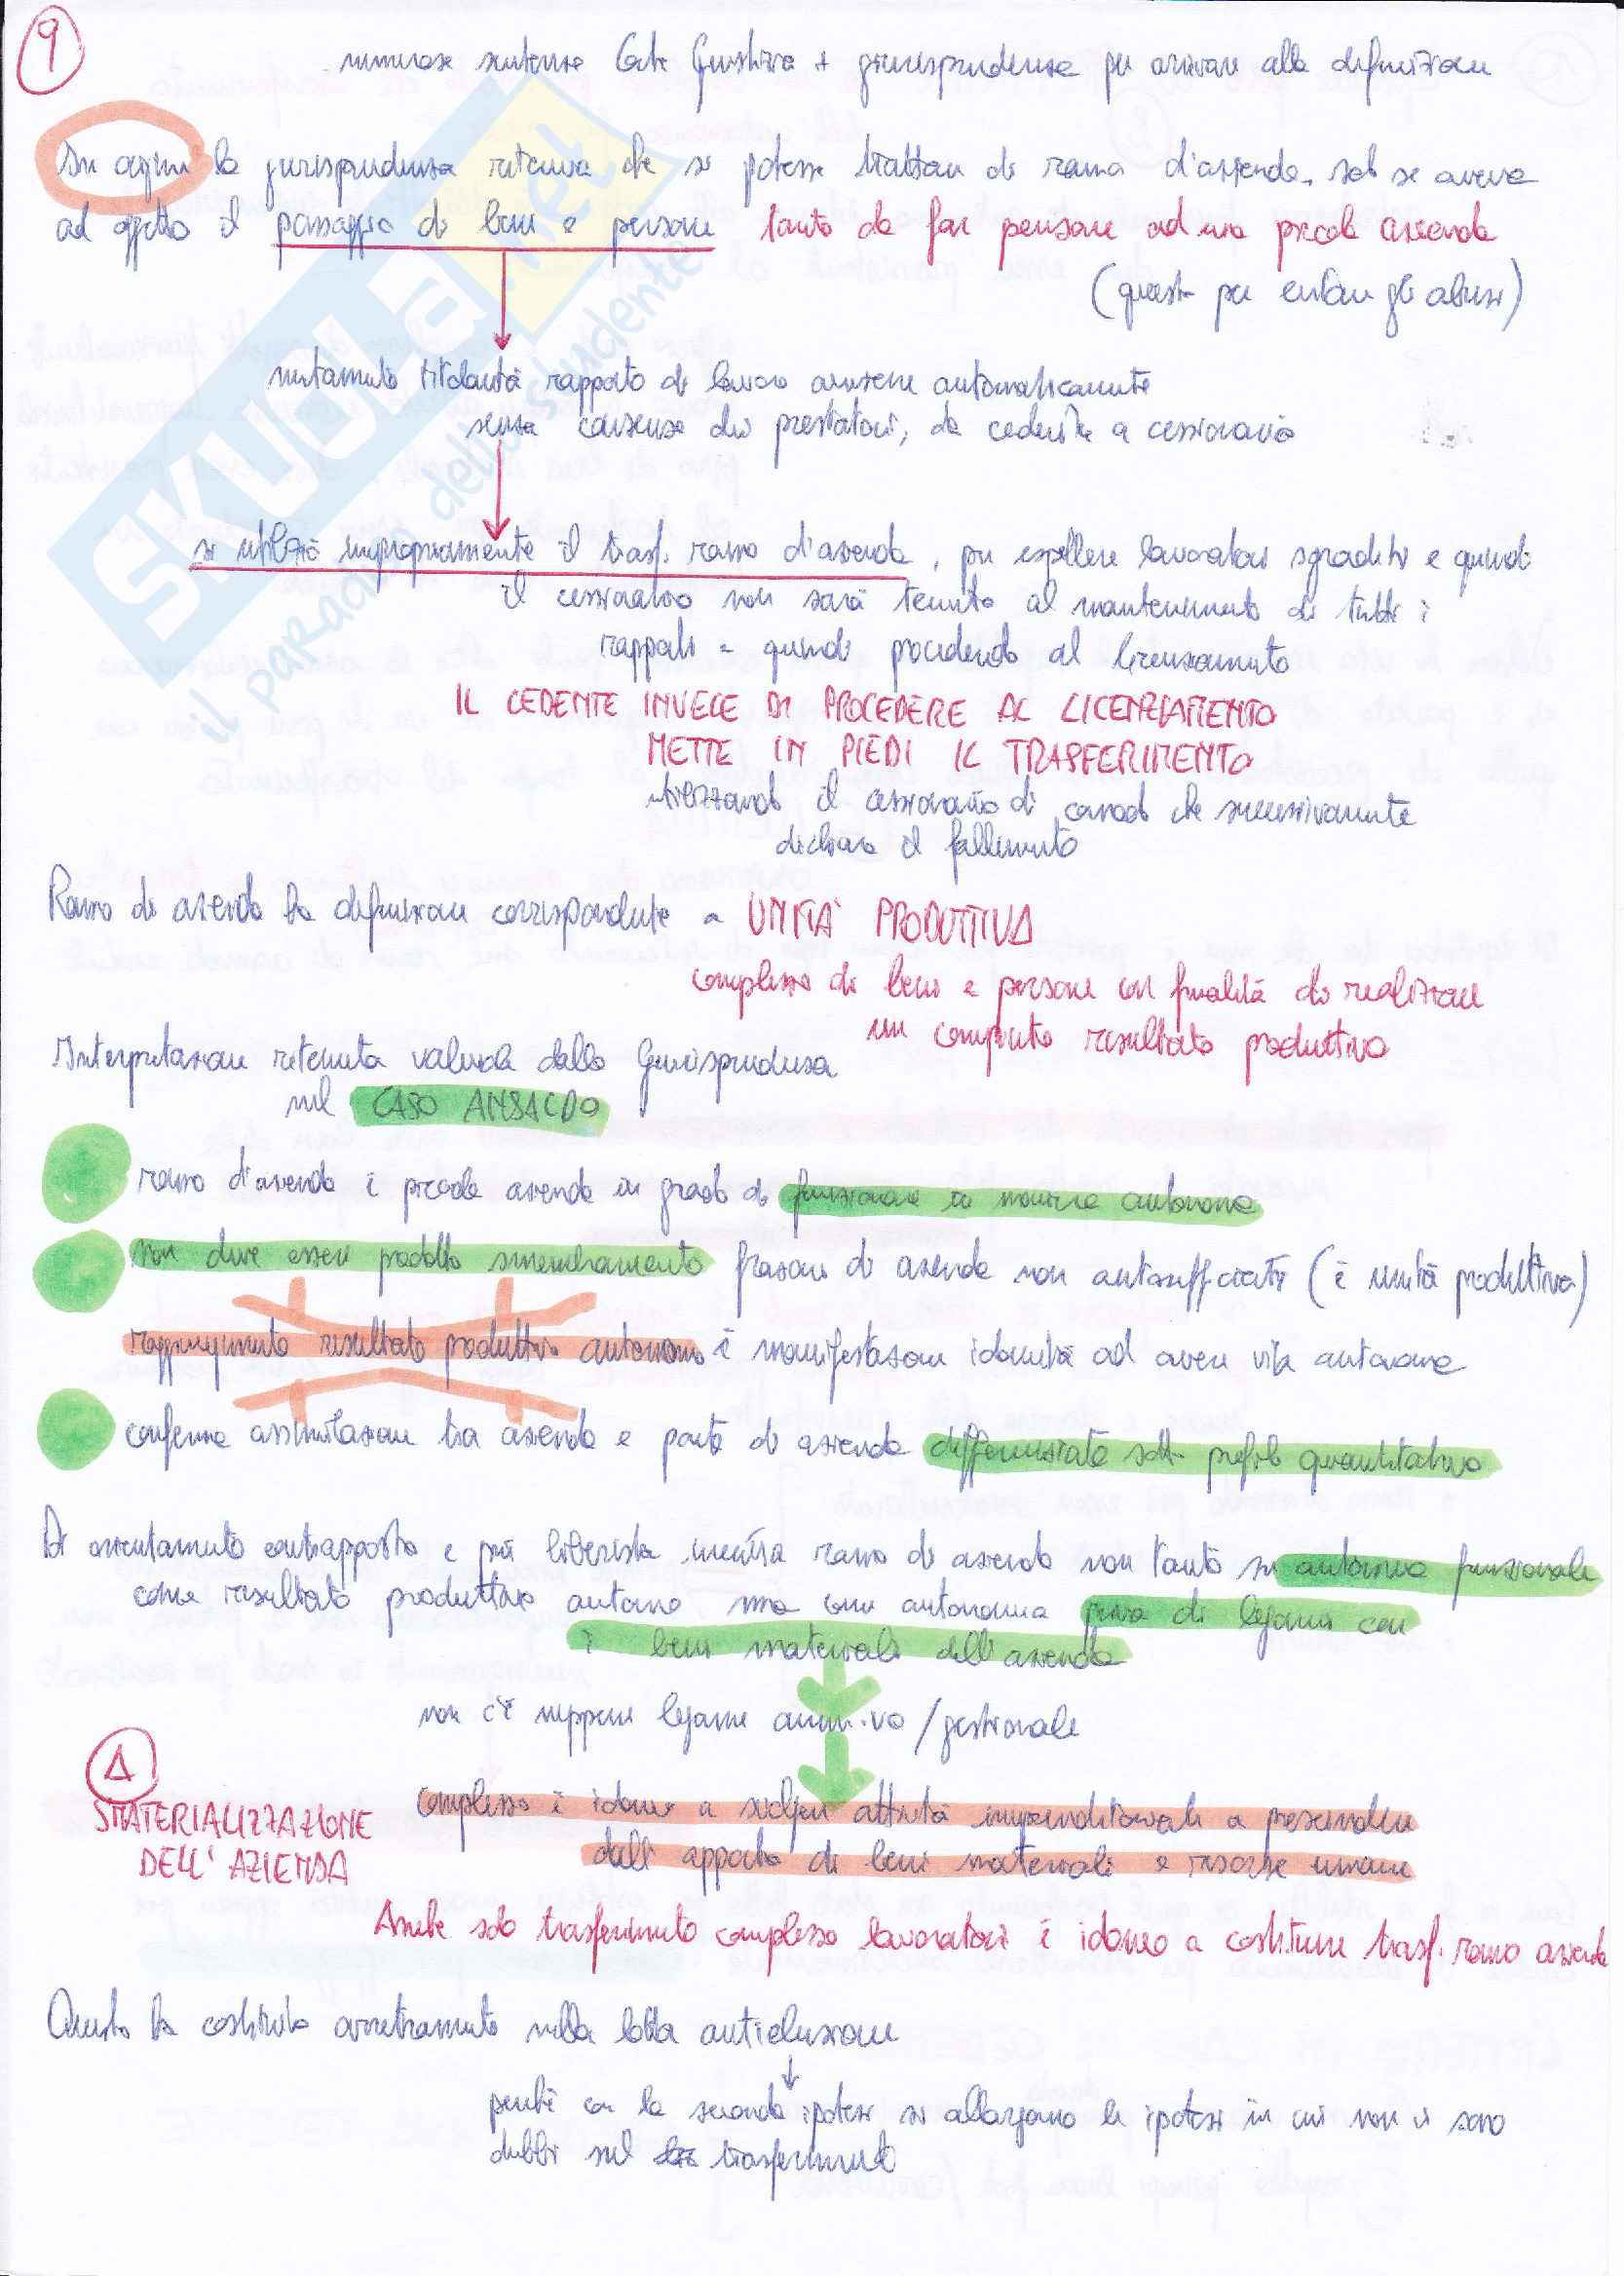 9
numerose sentenze Corte Giustizia + giurisprudenza per arrivare alla definizione
In origine la giurisprudenza riteneva che si potesse trattare di ramo d'azienda, solo se aveva
ad oggetto il passaggio di beni e persone tanto da far pensare ad una piccola azienda
(questo per evitare gli abusi)
mutamento titolarità rapporto di lavoro avviene automaticamente
senza consenso dei prestatori, da cedente a cessionario
si utilizzò impropriamente il trasf. ramo d'azienda, per espellere lavoratori sgraditi e quindi
il cessionario non sarà tenuto al mantenimento di tutti i
rapporti e quindi procedendo al licenziamento
IL CEDENTE INVECE DI PROCEDERE AL LICENZIAMENTO
METTE IN PIEDI IL TRASFERIMENTO
utilizzando il cessionario di comodo che successivamente
dichiara il fallimento
Ramo di azienda ha definizione corrispondente a UNITA' PRODUTTIVA
complesso di beni e persone con finalità di realizzare
un compiuto risultato produttivo
Interpretazione ritenuta valida dalla Giurisprudenza
nel CASO ANSALDO
ramo d'azienda è piccola azienda in grado di funzionare in maniera autonoma
non deve essere prodotto smembramento frazioni di azienda non autosufficienti (è unità produttiva)
raggiungimento risultato produttivo autonomo è manifestazione idoneità ad avere vita autonoma
conferma assimilazione tra azienda e parte di azienda differenziata sotto profilo quantitativo
Di orientamento contrapposto e più liberista incentra ramo di azienda non tanto su autonomia funzionale
come risultato produttivo autonomo ma come autonomia priva di legami con
i beni materiali dell'azienda
non c'è neppure legame amm.vo / gestionale
Δ
SMATERIALIZZAZIONE
DELL' AZIENDA
complesso è idoneo a svolgere attività imprenditoriale a prescindere
dall' apporto di beni materiali e risorse umane
Anche solo trasferimento complesso lavoratori è idoneo a costituire trasf. ramo azienda
Questo ha costituito arretramento nella lotta antielusione
perché con la seconda ipotesi si allargano le ipotesi in cui non ci sono
dubbi sul trasferimento
SKUOLA.net
il paradiso dello studente